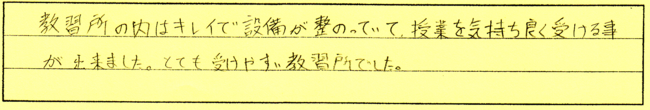 教習所の内はキレイで設備が整のっていて、授業を気持ち良く受ける事
が出来ました。とても受けやすい教習所でした。